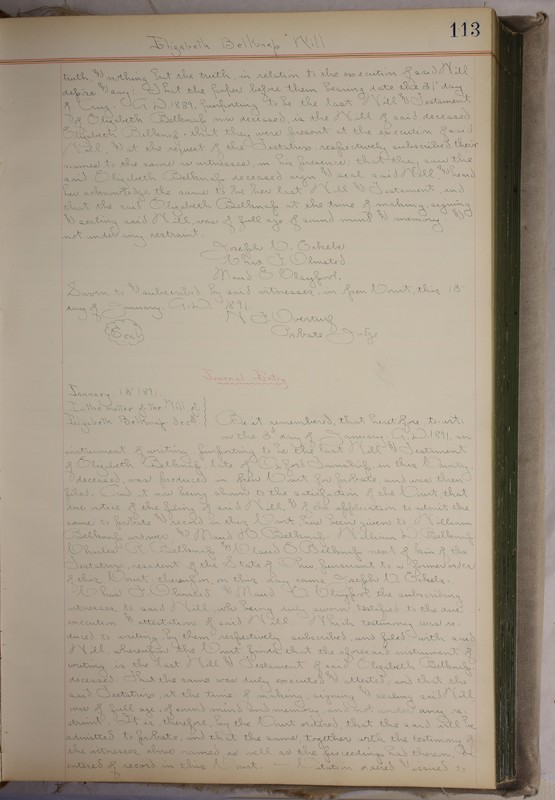 113
Elizabeth Belknap Will
truth & nothing but the truth, in relation to the execution of said Will
depose & say: That the paper before them bearing date the 31st day
of Aug. A.D. 1889, purporting to be the last Will & Testament
of Elizabeth Belknap now deceased, is the Will of said deceased
Elizabeth Belknap, that they were present at the execution of said
Will, & at the request of the Testatrix, respectively subscribed their
names to the same as witnesses, in her presence, that they saw the
said Elizabeth Belknap deceased sign & seal said Will & heard
her acknowledge the same to be her last Will & Testament, and
that the said Elizabeth Belknap at the time of making, signing
& sealing said Will, was of full age of sound mind & memory &
not under any restraint.
Joseph
Chas J. Olmsted
Maud
Sworn to & subscribed by said witnesses, in open Court, this 13
day of January A.D. 1891.
(Seal)
Probate Judge
Journal Entry
January 13 1891.
In the matter of the Will of
Elizabeth Belknap decd
Be it remembered, that heretofore to-wit:
on the 3d day of January A.D. 1891, an
instrument of writing, purporting to be the last Will & Testament
of Elizabeth Belknap late of Township, in this County,
deceased, was produced in open Court for probate, and was then
filed. And it now being shown to the satisfaction of the Court that
due notice of the filing of said Will, & of the application to admit the
same to probate & record in this Court have been given to William
Belknap widower & Maud Belknap, William L. Belknap
Charles R. Belknap & Belknap next of kin of the
Testatrix, resident of the State of Ohio pursuant to a former order
of this Court, thereupon, on this day came Joseph
Chas J. Olmsted & Maud the subscribing
witnesses to said Will, who being duly sworn testified to the due
execution & attestation of said Will. Which testimony was re-
duced to writing, by them respectively subscribed, and filed with said
Will whereupon the Court finds that the aforesaid instrument of
writing is the Last Will & Testament of said Elizabeth Belknap
deceased. That the same was duly executed & attested, and that the
said Testatrix, at the time of making, signing & sealing said Will
was of full age, of sound mind and memory, and not under any re-
straint. It is, therefore, by the Court ordered, that the said will be
admitted to probate, and that the same, together with the testimony of
the witnesses above named as well as the proceedings had thereon, be
entered of record in this Court. Citation ordered & issued to